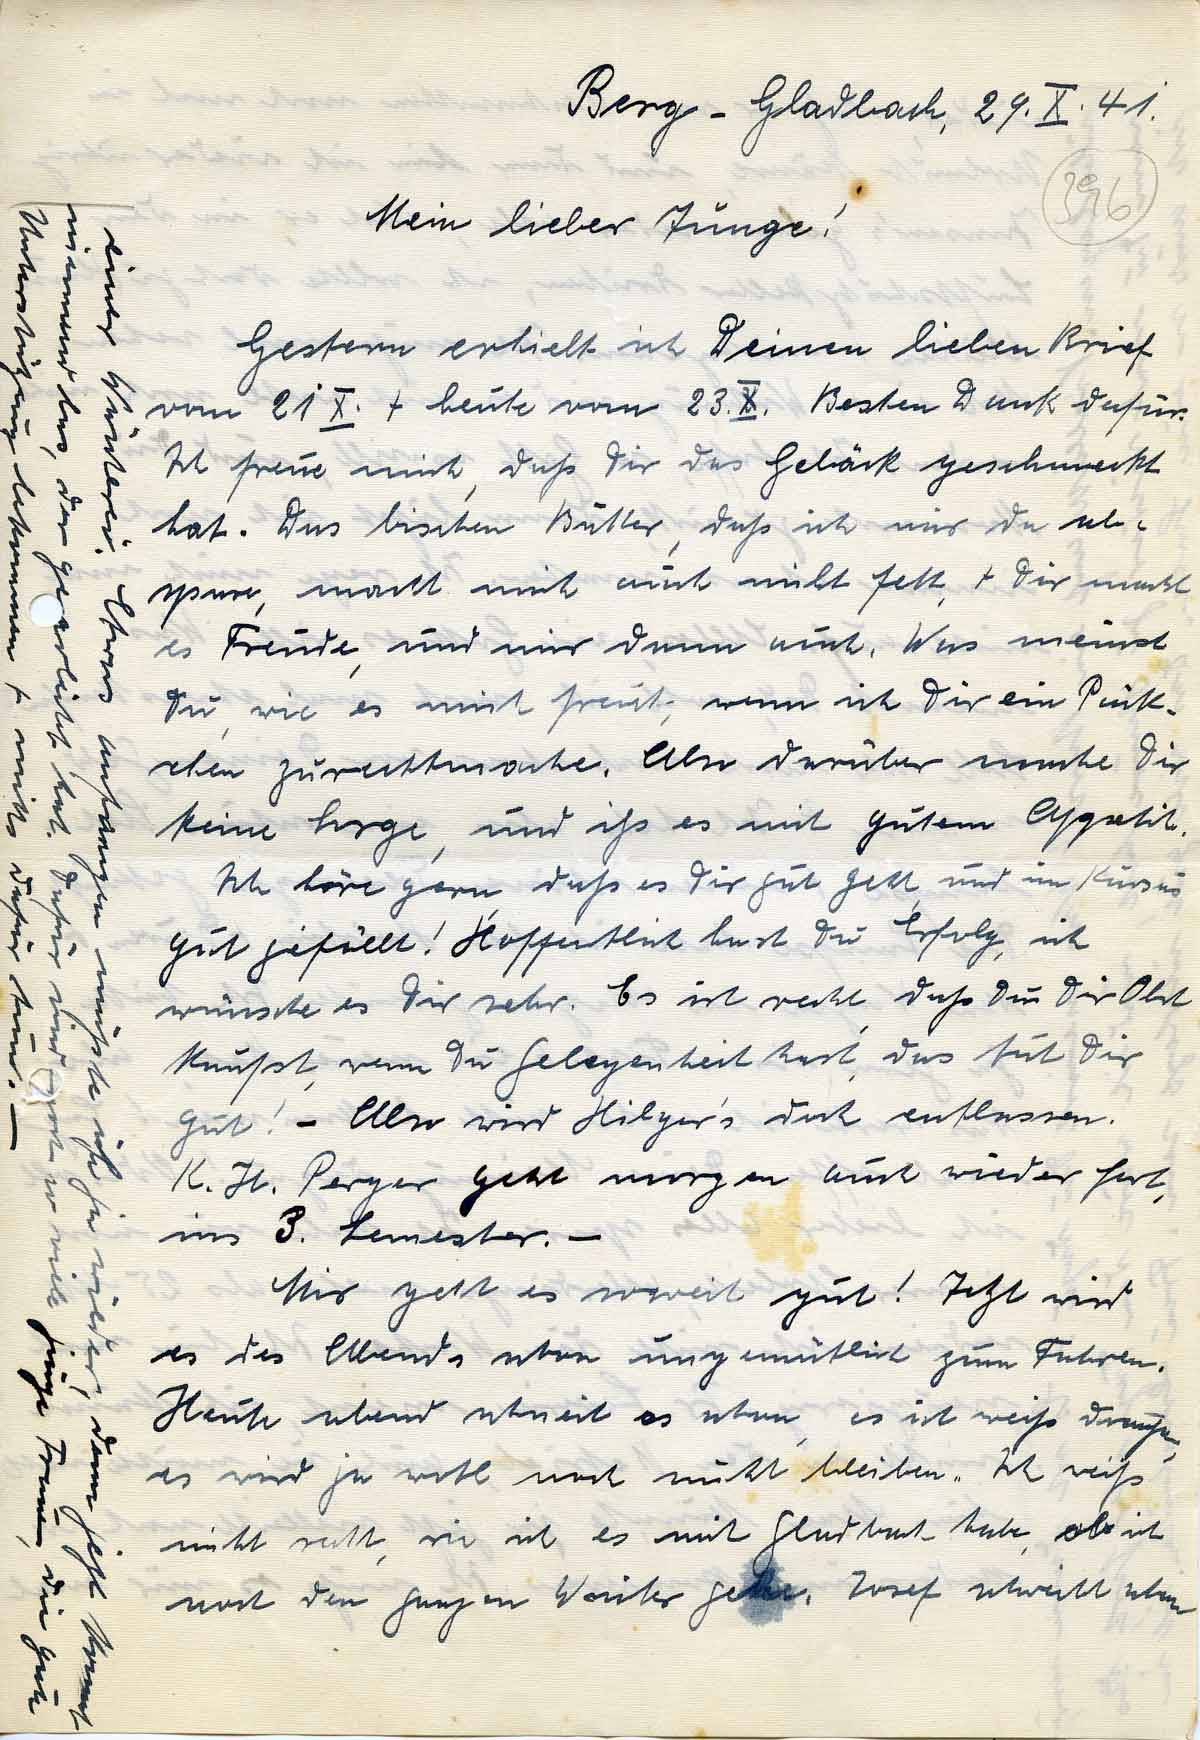 Berg-Gladbach, 29.X.41.
396
Mein lieber Junge!
Gestern erhielt ich Deinen lieben Brief
vom 21 X. + heute vom 23.X. Besten Dank dafür.
Ich freue mich, daß Dir das Gebäck geschmeckt
hat. Das bischen Butter, daß ich mir da ab-
spare, macht mich auch nicht fett, + Dir macht
es Freude, und mir dann auch. Was meinst
Du, wie es mich freut, wenn ich Dir ein Päck-
chen zurechtmache. Also darüber mache Dir
keine Sorge, und iß es mit gutem Appetit.
Ich höre gern daß es Dir gut geht, und im Kursus
gut gefällt! Hoffentlich hast Du Erfolg, ich
wünsche es Dir sehr. Es ist recht, daß Du Dir Obst
kaufst, wenn Du Gelegenheit hast, das tut Dir
gut! - Also wird Hilger's doch entlassen.
K. H. Perger geht morgen auch wieder fort,
ins 3. Semester. —
Mir geht es soweit gut! Jetzt wird
es des Abends schon ungemütlich zum Fahren.
Heute abend schneit es schon, es ist weiß draußen,
es wird ja wohl noch nicht bleiben. Ich weiß
nicht recht, wie ich es mit Gladbach habe, ob ich
noch den ganzen Winter gehe. Josef schreibt schon
einer Wüterei. Etwas anfangen müßte ich ja wieder, denn jetzt kommt
niemand aus, der gearbeitet hat. Dafür sind noch so viele junge Frauen, die gute
Unterstützung bekommen + nichts dafür tuen. —